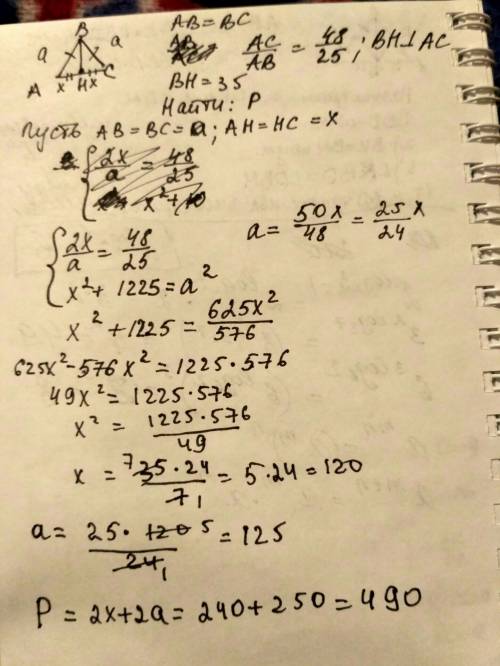 B
a a
A x H x C
AB = BC
AC/AB = 48/25; BH⊥AC
BH = 35
Найти: P
Пусть AB = BC = a; AH = HC = x
{2x/a = 48/25
x² + 10
{2x/a = 48/25
x² + 1225 = a²
a = 50x/48 = 25/24 x
x² + 1225 = 625x²/576
625x² - 576x² = 1225·576
49x² = 1225·576
x² = 1225·576/49
x = 35·24/7 = 5·24 = 120
a = 25·120/24 = 125
P = 2x + 2a = 240 + 250 = 490